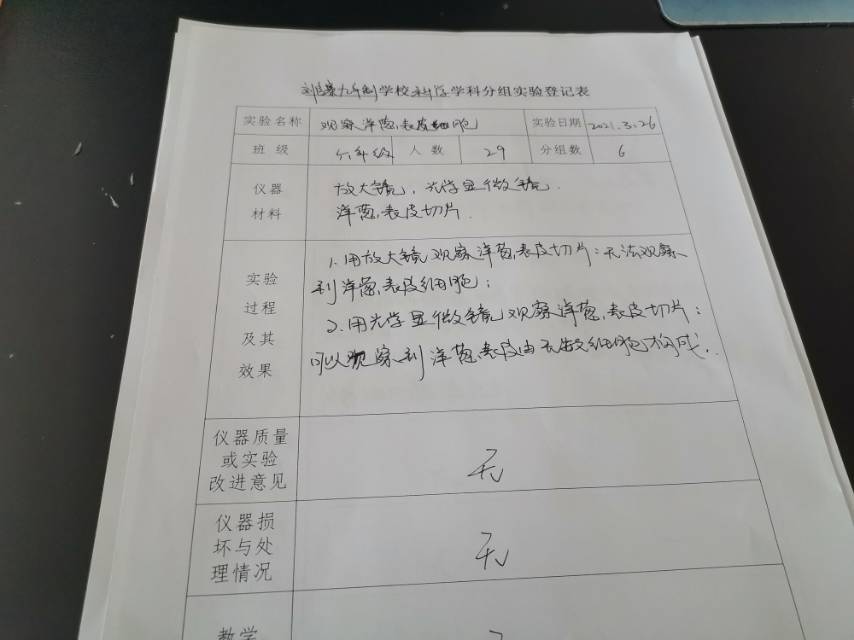 九年制学校科学学科分组实验登记表
实验名称 观察洋葱表皮细胞 实验日期 2021.3.26
班级 六年级 人数 29 分组数 6
仪器 放大镜，光学显微镜．
材料 洋葱表皮切片．
1.用放大镜观察洋葱表皮切片：无法观察
到洋葱表皮细胞；
2.用光学显微镜观察洋葱表皮切片：
可以观察到洋葱表皮由无数细胞构成．
实验
过程
及其
效果
仪器质量
或实验
改进意见
无
仪器损
坏与处
理情况
无
教学